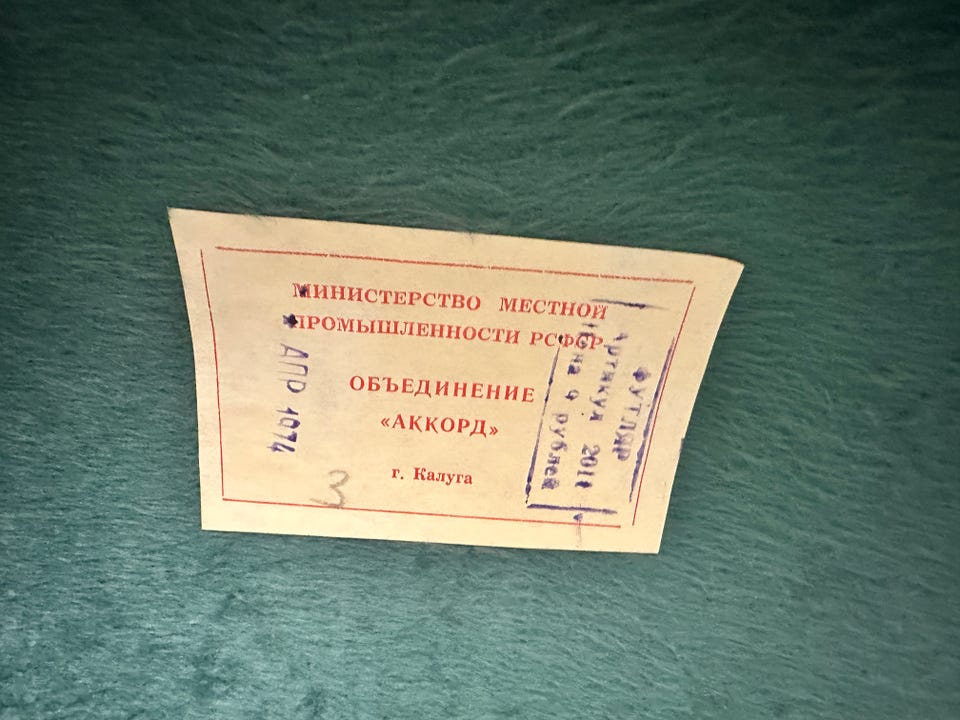 МИНИСТЕРСТВО МЕСТНОЙ
ПРОМЫШЛЕННОСТИ РСФСР
ОБЪЕДИНЕНИЕ
«АККОРД»
г. Калуга
АПР 1974
3
ФУТЛЯР
Артикул 2011
Цена 9 рублей